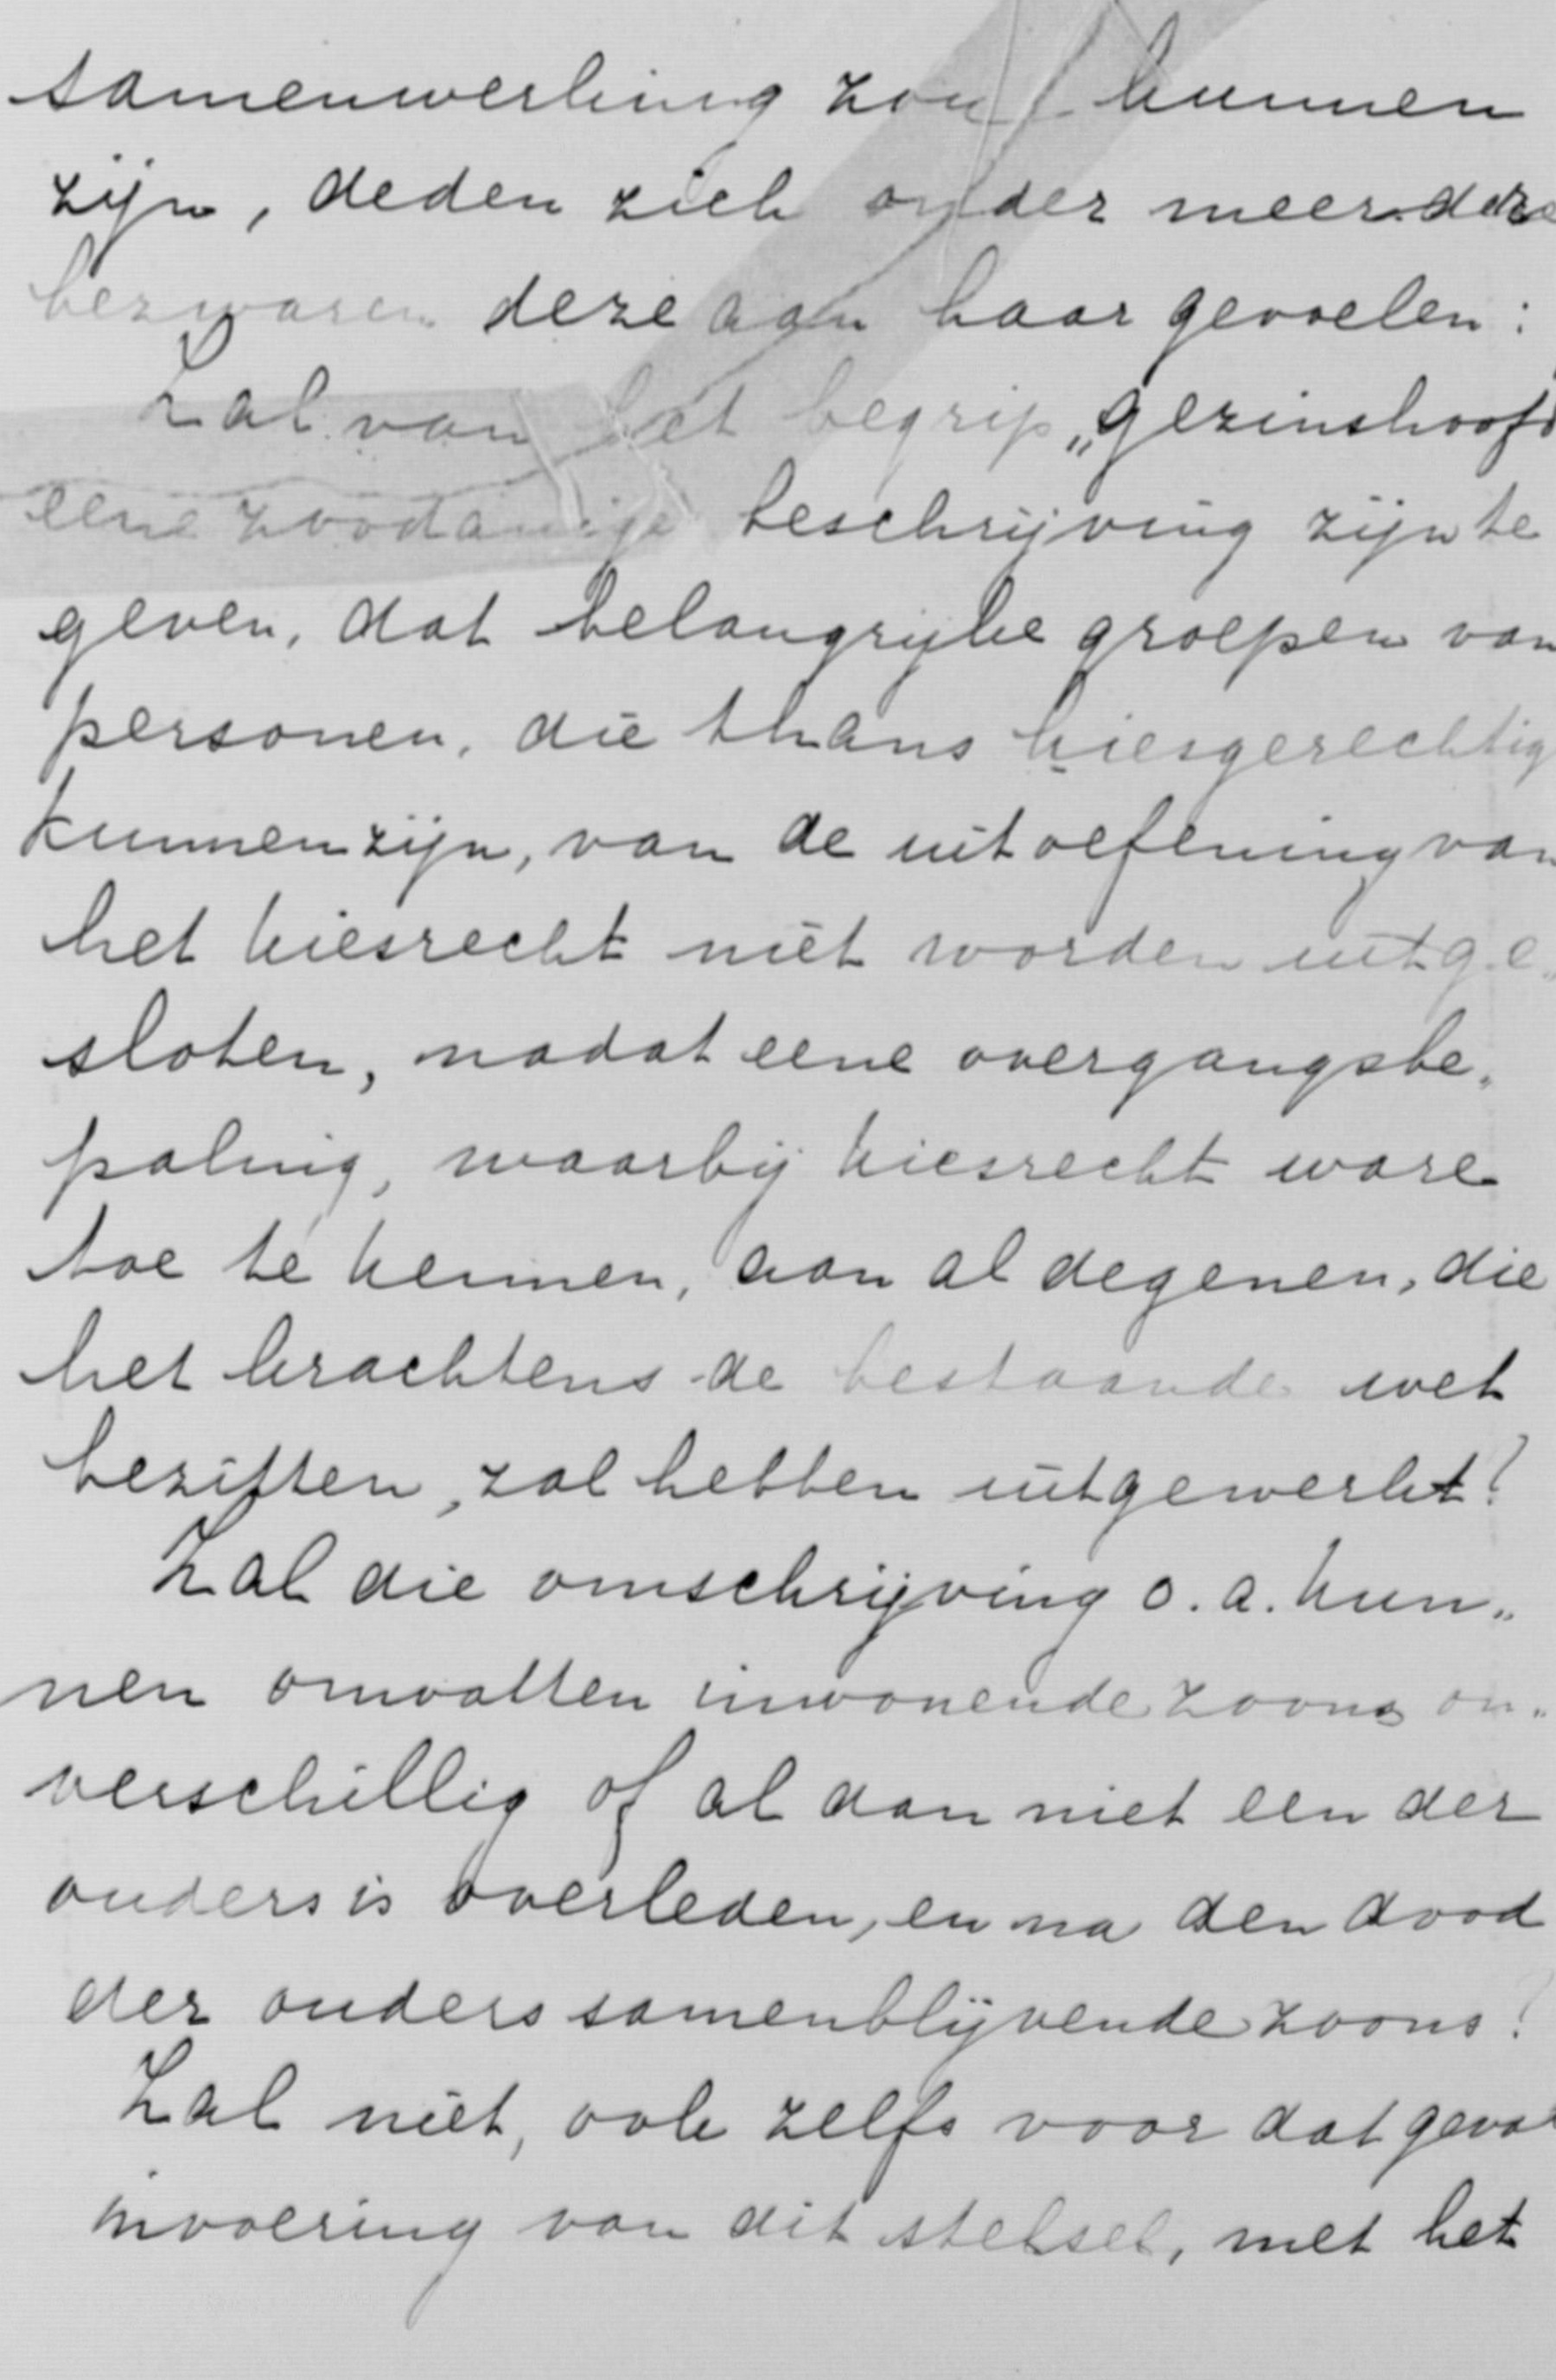 samenwerking zou kunnen
zijn, deden zich onder meerdere
bezwaren deze aan haar gevoelen:
Zal van het begrip „gezinshoofd
eene zoodanige beschrijving zijn te
geven, dat belangrijke groepen van
personen, die thans kiesgerechtig
kunnen zijn, van de uitoefening van
het kiesrecht niet worden uitge„
sloten, nadat eene overgangsbe„
paling, waarbij kiesrecht ware
toe te kennen, aan al degenen, die
het krachtens de bestaande wet
bezitten, zal hebben uitgewerkt?
Zal die omschrijving o.a. kun„
nen omvatten inwonende zoons on„
verschillig of al dan niet een der
ouders is overleden, en na den dood
der ouders samenblijvende zoons?
Zal niet, ook zelfs voor dat geval
invoering van dit stelsel, met het